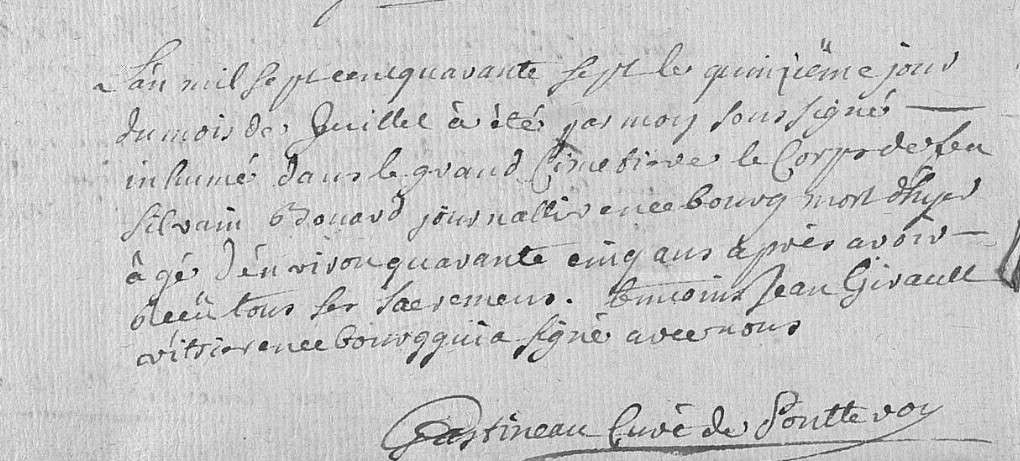 L'an mil sept cent quarante sept le quinziëme jour
du mois de Juillet à été par moy soussigné
inhumé dans le grand Cimetiere le Corps de feu
silvain edouard journallier en ce bourg mort d'hyer
âgé d'environ quarante cinq ans après avoir
receü tous ses sacremens. temoins Jean Girault
vitrier en ce bourg qui a signé avec nous
Gastineau Curé de Pontlevoy